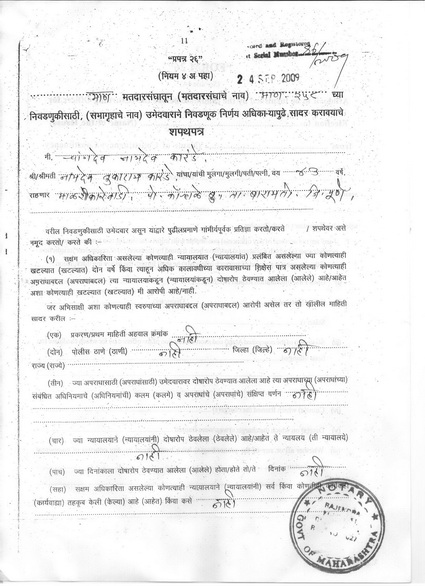 ११
"प्रपत्र २६"
(नियम ४ अ पहा)
24 SEP 2009
माण मतदारसंघातून (मतदारसंघाचे नाव) माण २५८ च्या
निवडणुकीसाठी, (सभागृहाचे नाव) उमेदवाराने निवडणूक निर्णय अधिकाऱ्यापुढे सादर करावयाचे
शपथपत्र
मी, नामदेव कारंडे
श्री/श्रीमती नामदेव तुकाराम कारंडे यांचा/यांची मुलगा/मुलगी/पती/पत्नी, वय ४३ वर्षे,
राहणार ता. बारामती जि. पुणे,
वरील निवडणुकीसाठी उमेदवार असून याद्वारे पुढीलप्रमाणे गांभीर्यपूर्वक प्रतिज्ञा करतो/करते / शपथेवर असे
नमूद करतो/ करते की :-
(१) सक्षम अधिकारिता असलेल्या कोणत्याही न्यायालयात (न्यायालयांत) प्रलंबित असलेल्या ज्या कोणत्याही
खटल्यात (खटल्यात) दोन वर्षे किंवा त्याहून अधिक कालावधीच्या कारावासाच्या शिक्षेस पात्र असलेल्या कोणत्याही
अपराधाबद्दल (अपराधाबद्दल) त्या न्यायालयाकडून (न्यायालयांकडून) दोषारोप ठेवलेला (आलेले) आहे/आहेत
अशा कोणत्याही खटल्यात (खटल्यात) मी आरोपी आहे/नाही.
जर अभिसाक्षी अशा कोणत्याही स्वरुपाच्या अपराधाबद्दल (अपराधाबद्दल) आरोपी असेल तर तो खालील माहिती
सादर करील :-
(एक) प्रकरण/प्रथम माहिती अहवाल क्रमांक नाही
(दोन) पोलीस ठाणे (ठाणी) नाही जिल्हा (जिल्हे) नाही
राज्य (राज्ये)
(तीन) ज्या अपराधासाठी (अपराधांसाठी) उमेदवारावर दोषारोप ठेवण्यात आलेला आहे त्या अपराधाच्या (अपराधांच्या)
संबंधित अधिनियमाचे (अधिनियमांची) कलम (कलमे) व अपराधांचे (अपराधाचे) संक्षिप्त वर्णन नाही
(चार) ज्या न्यायालयाने (न्यायालयांनी) दोषारोप ठेवलेला (ठेवलेले) आहे/आहेत ते न्यायालय (ती न्यायालये)
नाही
(पाच) ज्या दिनांकाला दोषारोप ठेवण्यात आलेला (आलेले) होता/होते तो/ते दिनांक नाही
(सहा) सक्षम अधिकारिता असलेल्या कोणत्याही न्यायालयाने (न्यायालयांनी) सर्व किंवा
(कार्यवाह्या) तहकूब केली (केल्या) आहे (आहेत) किंवा कसे नाही
NOTARY
GOVT OF MAHARASHTRA